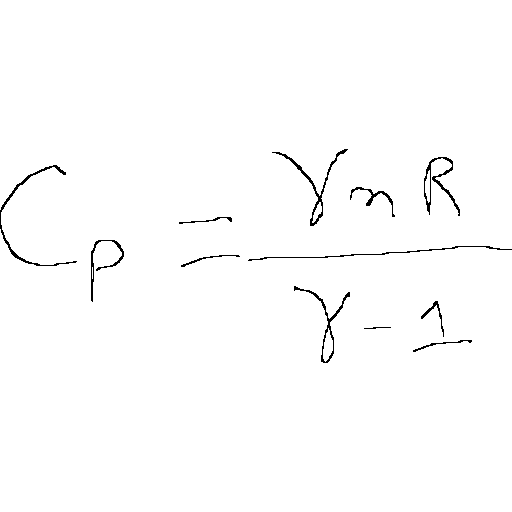 C_p = \frac{\gamma n R}{\gamma - 1}